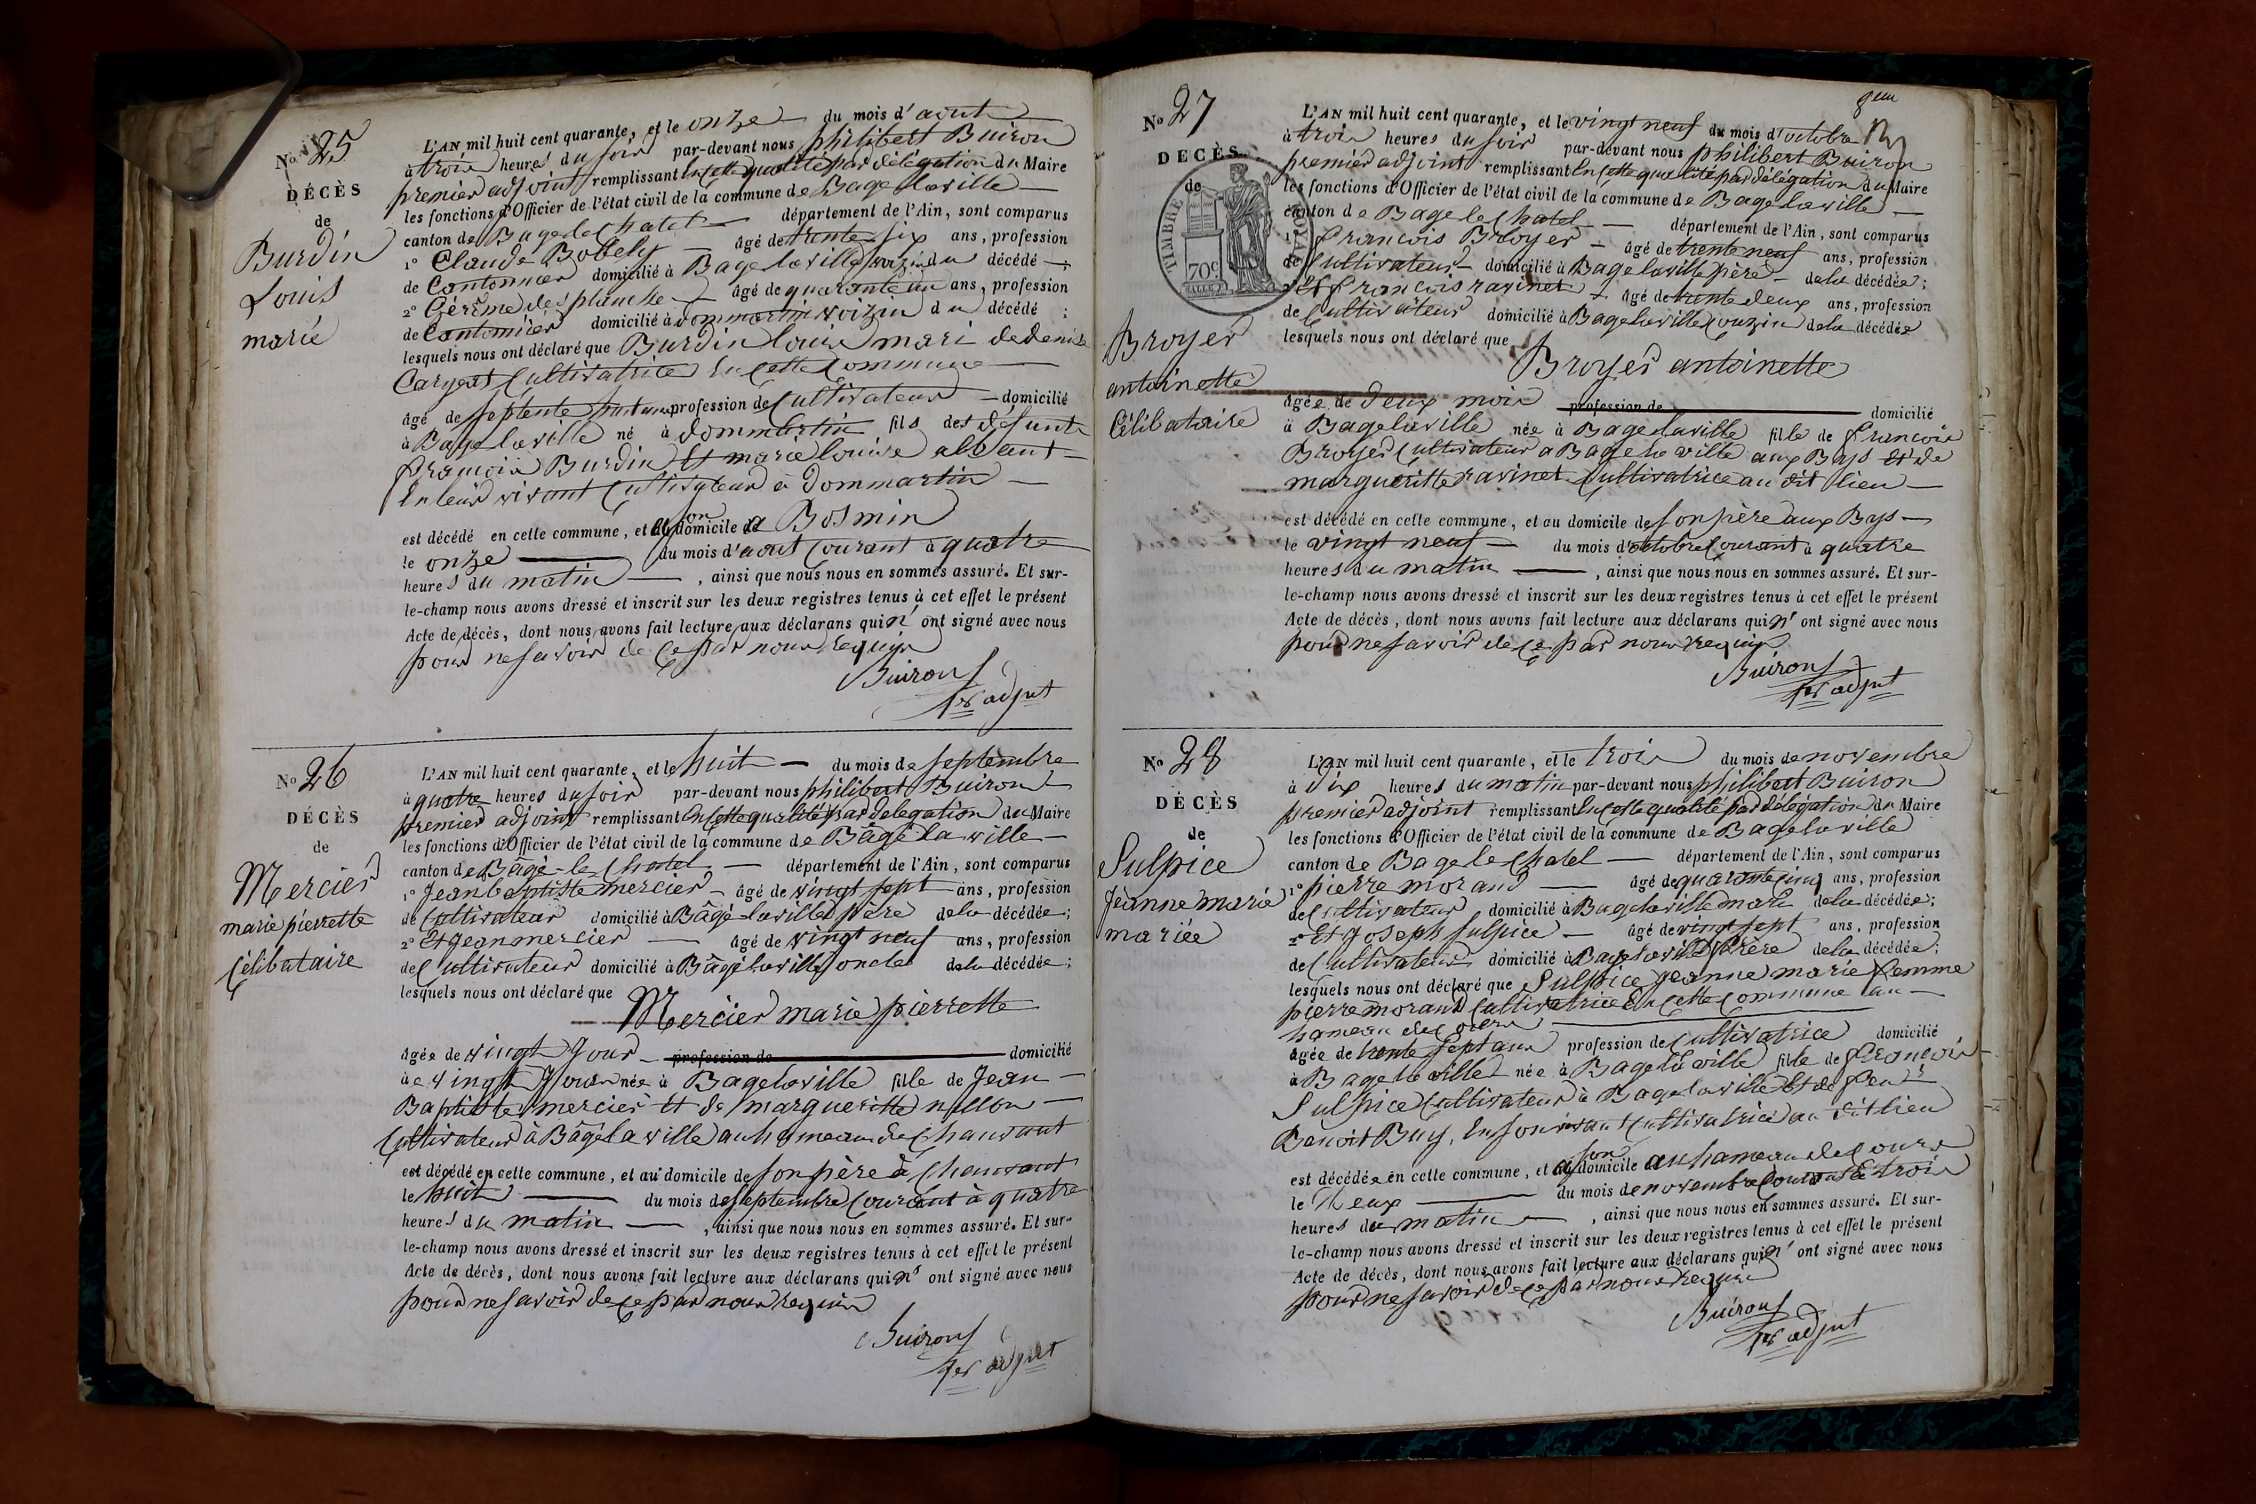 No 25
DÉCÈS
de
Burdin
Louis
marié
L'AN mil huit cent quarante, et le onze du mois d'aout
à trois heures du soir par-devant nous philibert Buiron
premier adjoint remplissant en cette qualité par délégation du Maire
les fonctions d'Officier de l'état civil de la commune de Bagé laville
canton de Bagé le chatel département de l'Ain, sont comparus
1° Claude Bobely âgé de trente six ans, profession
de Cantonnier domicilié à Bagé laville voizin du décédé ;
2° Gérème desplanche âgé de quarante un ans, profession
de Cantonnier domicilié à dommartin voizin du décédé ;
lesquels nous ont déclaré que Burdin louis mari de denise
Carjeat Cultivatrice en cette Commune
âgé de septente huit ans profession de Cultivateur domicilié
à Bagé laville né à dommartin fils des défunts
françois Burdin Et marie louise
En leur vivant Cultivateurs à dommartin
est décédé en cette commune, et à son domicile a Bosmin
le onze du mois d'aout Courant à quatre
heures du matin , ainsi que nous nous en sommes assuré. Et sur-
le-champ nous avons dressé et inscrit sur les deux registres tenus à cet effet le présent
Acte de décès, dont nous avons fait lecture aux déclarans qui n' ont signé avec nous
pour ne savoir de ce par nous requis
Buiron
1er adjnt
No 26
DÉCÈS
de
Mercier
marie pierrette
Célibataire
L'AN mil huit cent quarante, et le huit du mois de septembre
à quatre heures du soir par-devant nous philibert Buiron
premier adjoint remplissant en cette qualité par délégation du Maire
les fonctions d'Officier de l'état civil de la commune de Bâgé la ville
canton de Bâgé-le-Chatel département de l'Ain, sont comparus
1° Jean baptiste mercier âgé de vingt sept ans, profession
de Cultivateur domicilié à Bâgé laville père de la décédée ;
2° Et jean mercier âgé de vingt neuf ans, profession
de Cultivateur domicilié à Bâgé laville oncle de la décédée ;
lesquels nous ont déclaré que
Mercier marie pierrette
âgée de vingt Jours profession de domicilié
à e vingt Jours née à Bagé laville fille de Jean
Baptiste mercier Et de margueritte nallon
Cultivateurs à Bâgé la ville au hameau de Chanvant
est décédé en cette commune, et au domicile de son père à Chanvant
le huit du mois de septembre Courant à quatre
heures du matin , ainsi que nous nous en sommes assuré. Et sur-
le-champ nous avons dressé et inscrit sur les deux registres tenus à cet effet le présent
Acte de décès, dont nous avons fait lecture aux déclarans qui n' ont signé avec nous
pour ne savoir de ce par nous requis
Buiron
1er adjnt
No 27
DÉCÈS
de
TIMBRE ROYAL
70c
Broyer
antoinette
Célibataire
L'AN mil huit cent quarante, et le vingt neuf du mois d'octobre
à trois heures du soir par-devant nous philibert Buiron
premier adjoint remplissant en cette qualité par délégation du Maire
les fonctions d'Officier de l'état civil de la commune de Bagé laville
canton de Bagé le chatel département de l'Ain, sont comparus
1° françois Broyer âgé de trente neuf ans, profession
de Cultivateur domicilié à Bagé laville père de la décédée ;
2° Et françois ravinet âgé de trente deux ans, profession
de Cultivateur domicilié à Bagé laville Couzin de la décédée
lesquels nous ont déclaré que
Broyer antoinette
âgée de deux mois profession de domicilié
à Bagé laville née à Bagé laville fille de françois
Broyer Cultivateur a Bagé la ville aux Bys Et de
margueritte ravinet Cultivatrice au dit lieu
est décédé en cette commune, et au domicile de son père aux Bys
le vingt neuf du mois d'octobre Courant à quatre
heures du matin , ainsi que nous nous en sommes assuré. Et sur-
le-champ nous avons dressé et inscrit sur les deux registres tenus à cet effet le présent
Acte de décès, dont nous avons fait lecture aux déclarans qui n' ont signé avec nous
pour ne savoir de ce par nous requis
Buiron
1er adjnt
No 28
DÉCÈS
de
Sulpice
Jeanne marie
mariée
L'AN mil huit cent quarante, et le trois du mois de novembre
à dix heures du matin par-devant nous philibert Buiron
premier adjoint remplissant en cette qualité par délégation du Maire
les fonctions d'Officier de l'état civil de la commune de Bagé laville
canton de Bagé le chatel département de l'Ain, sont comparus
1° pierre morand âgé de quarante cinq ans, profession
de Cultivateur domicilié à Bagé laville mari de la décédée ;
2° Et joseph sulpice âgé de vingt sept ans, profession
de Cultivateur domicilié à Bagé laville frère de la décédée ;
lesquels nous ont déclaré que Sulpice jeanne marie femme
pierre morand Cultivatrice En cette Commune au
hameau de Cours
âgée de trente sept ans profession de Cultivatrice domicilié
à Bagé la ville née à Bagé la ville fille de françois
Sulpice Cultivateur à Bagé la ville Et de feu
Benoit Buy, En son vivant Cultivatrice au dit lieu
est décédée en cette commune, et à son domicile au hameau de Cours
le deux du mois de novembre Courant à trois
heures du matin , ainsi que nous nous en sommes assuré. Et sur-
le-champ nous avons dressé et inscrit sur les deux registres tenus à cet effet le présent
Acte de décès, dont nous avons fait lecture aux déclarans qui n' ont signé avec nous
pour ne savoir de ce par nous requis
Buiron
1er adjnt